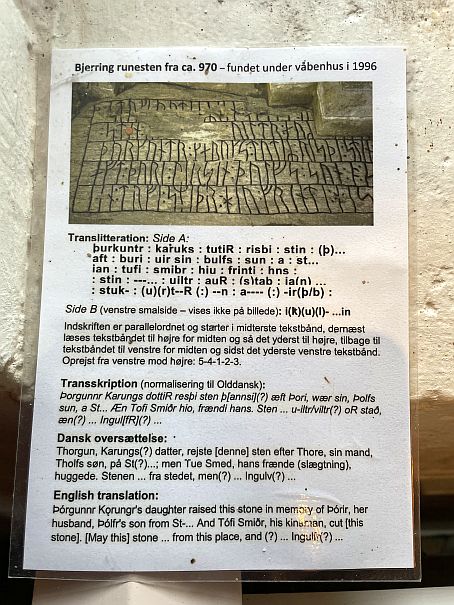 Bjerring runesten fra ca. 970 – fundet under våbenhus i 1996
Translitteration: Side A:
þurkuntr : karuks : tutiR : risbi : stin : (þ)...
aft : buri : uir sin : bulfs : sun : a : st...
ian : tufi : smibr : hiu : frinti : hns :
: stin : ---... : uiltr : auR : (s)tab : ia(n) ...
: stuk- : (u)(r)t--R (:) --n : a---- (:) -ir(þ/b) :
Side B (venstre smalside – vises ikke på billede): i(k)(u)(l)- ...in
Indskriften er parallelordnet og starter i midterste tekstbånd, dernæst
læses tekstbåndet til højre for midten og så det yderst til højre, tilbage til
tekstbåndet til venstre for midten og sidst det yderste venstre tekstbånd.
Oprejst fra venstre mod højre: 5-4-1-2-3.
Transskription (normalisering til Olddansk):
Þorgunnr Karungs dottiR resþi sten þ[annsi](?) æft Þori, wær sin, Þolfs
sun, a St... Æn Tofi Smiðr hio, frændi hans. Sten ... u-iltr/viltr(?) oR stað,
æn(?) ... Ingul[fR](?) ...
Dansk oversættelse:
Thorgun, Karungs(?) datter, rejste [denne] sten efter Thore, sin mand,
Tholfs søn, på St(?)...; men Tue Smed, hans frænde (slægtning),
huggede. Stenen ... fra stedet, men(?) ... Ingulv(?) ...
English translation:
Þórgunnr Kǫrungr's daughter raised this stone in memory of Þórir, her
husband, Þólfr's son from St-... And Tófi Smiðr, his kinsman, cut [this
stone]. [May this] stone ... from this place, and (?) ... Ingulfr(?) ...